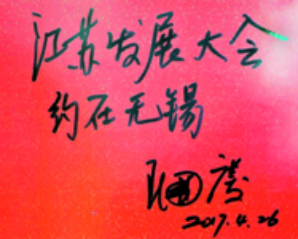 江苏发展大会
约在无锡
2017.4.26